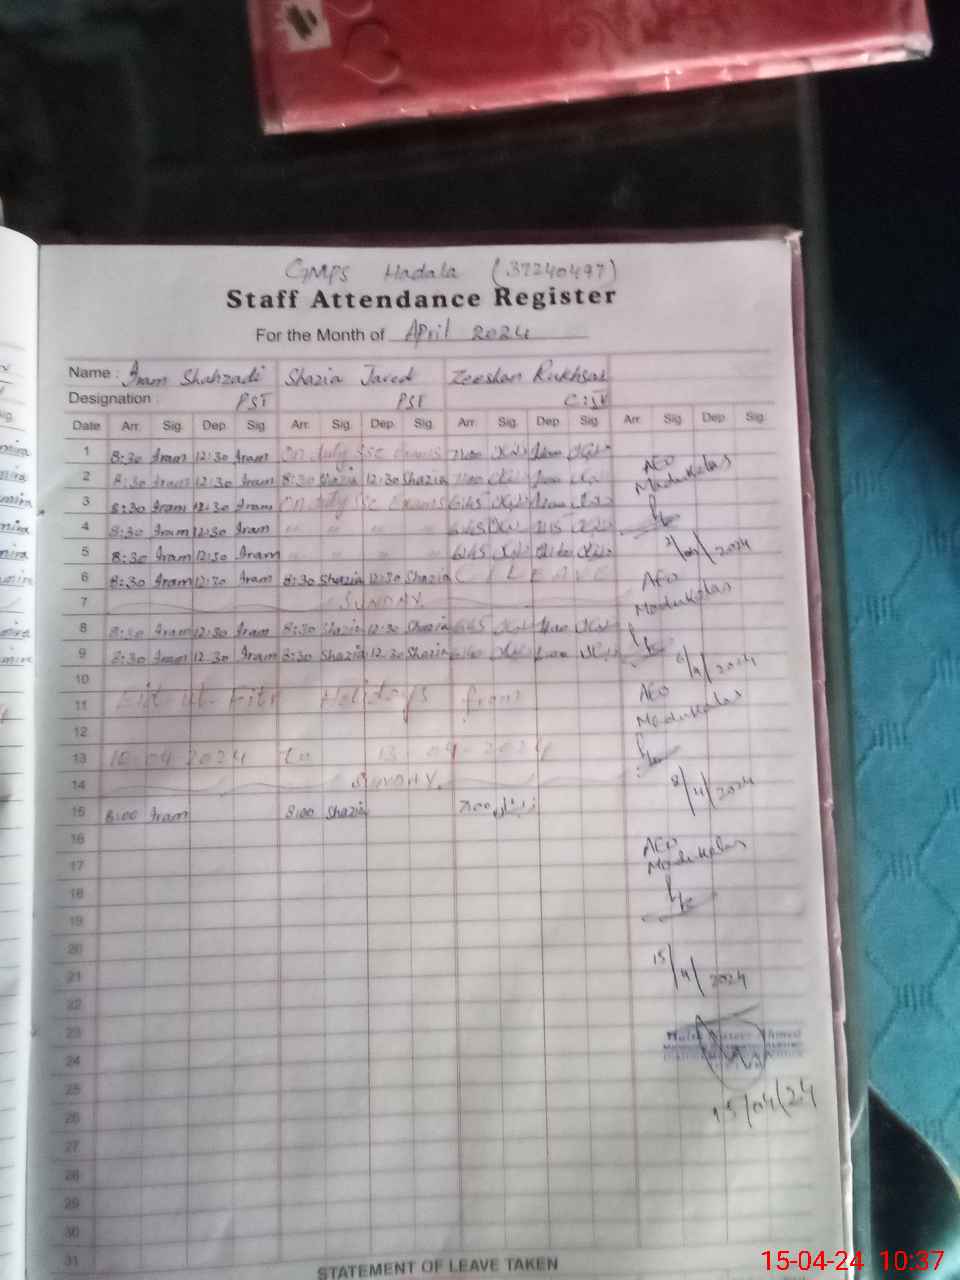 GMPS Hadala (37240497)
Staff Attendance Register
For the Month of April 2024
Name : Iram Shahzadi Shazia Javed Zeeshan Rukhsar
Designation : PST PST
Date Arr. Sig. Dep. Sig. Arr. Sig. Dep. Sig. Arr. Sig. Dep. Sig. Arr. Sig. Dep. Sig.
1 8:30 Iram 12:30 Iram On duty SSC Exams 7:00
2 8:30 Iram 12:30 Iram 8:30 Shazia 12:30 Shazia 7:00
3 8:30 Iram 12:30 Iram On duty SSC Exams 6:45
4 8:30 Iram 12:30 Iram " " " " 6:45
5 8:30 Iram 12:30 Iram " " " " 6:45
6 8:30 Iram 12:30 Iram 8:30 Shazia 12:30 Shazia C / LEAVE
7 SUNDAY.
8 8:30 Iram 12:30 Iram 8:30 Shazia 12:30 Shazia 6:45
9 8:30 Iram 12:30 Iram 8:30 Shazia 12:30 Shazia
10
11 Eid-ul-Fitr Holidays from
12
13 10-04-2024 to 13-04-2024
14 SUNDAY.
15 8:00 Iram 8:00 Shazia 7:00
16
17
18
19
20
21
22
23
24
25
26
27
28
29
30
31
AEO
Madukalas
2024
AEO
Madukalas
2024
AEO
Madukalas
8/4/2024
AEO
Madukalas
15/4/2024
15/04/24
STATEMENT OF LEAVE TAKEN
15-04-24 10:37